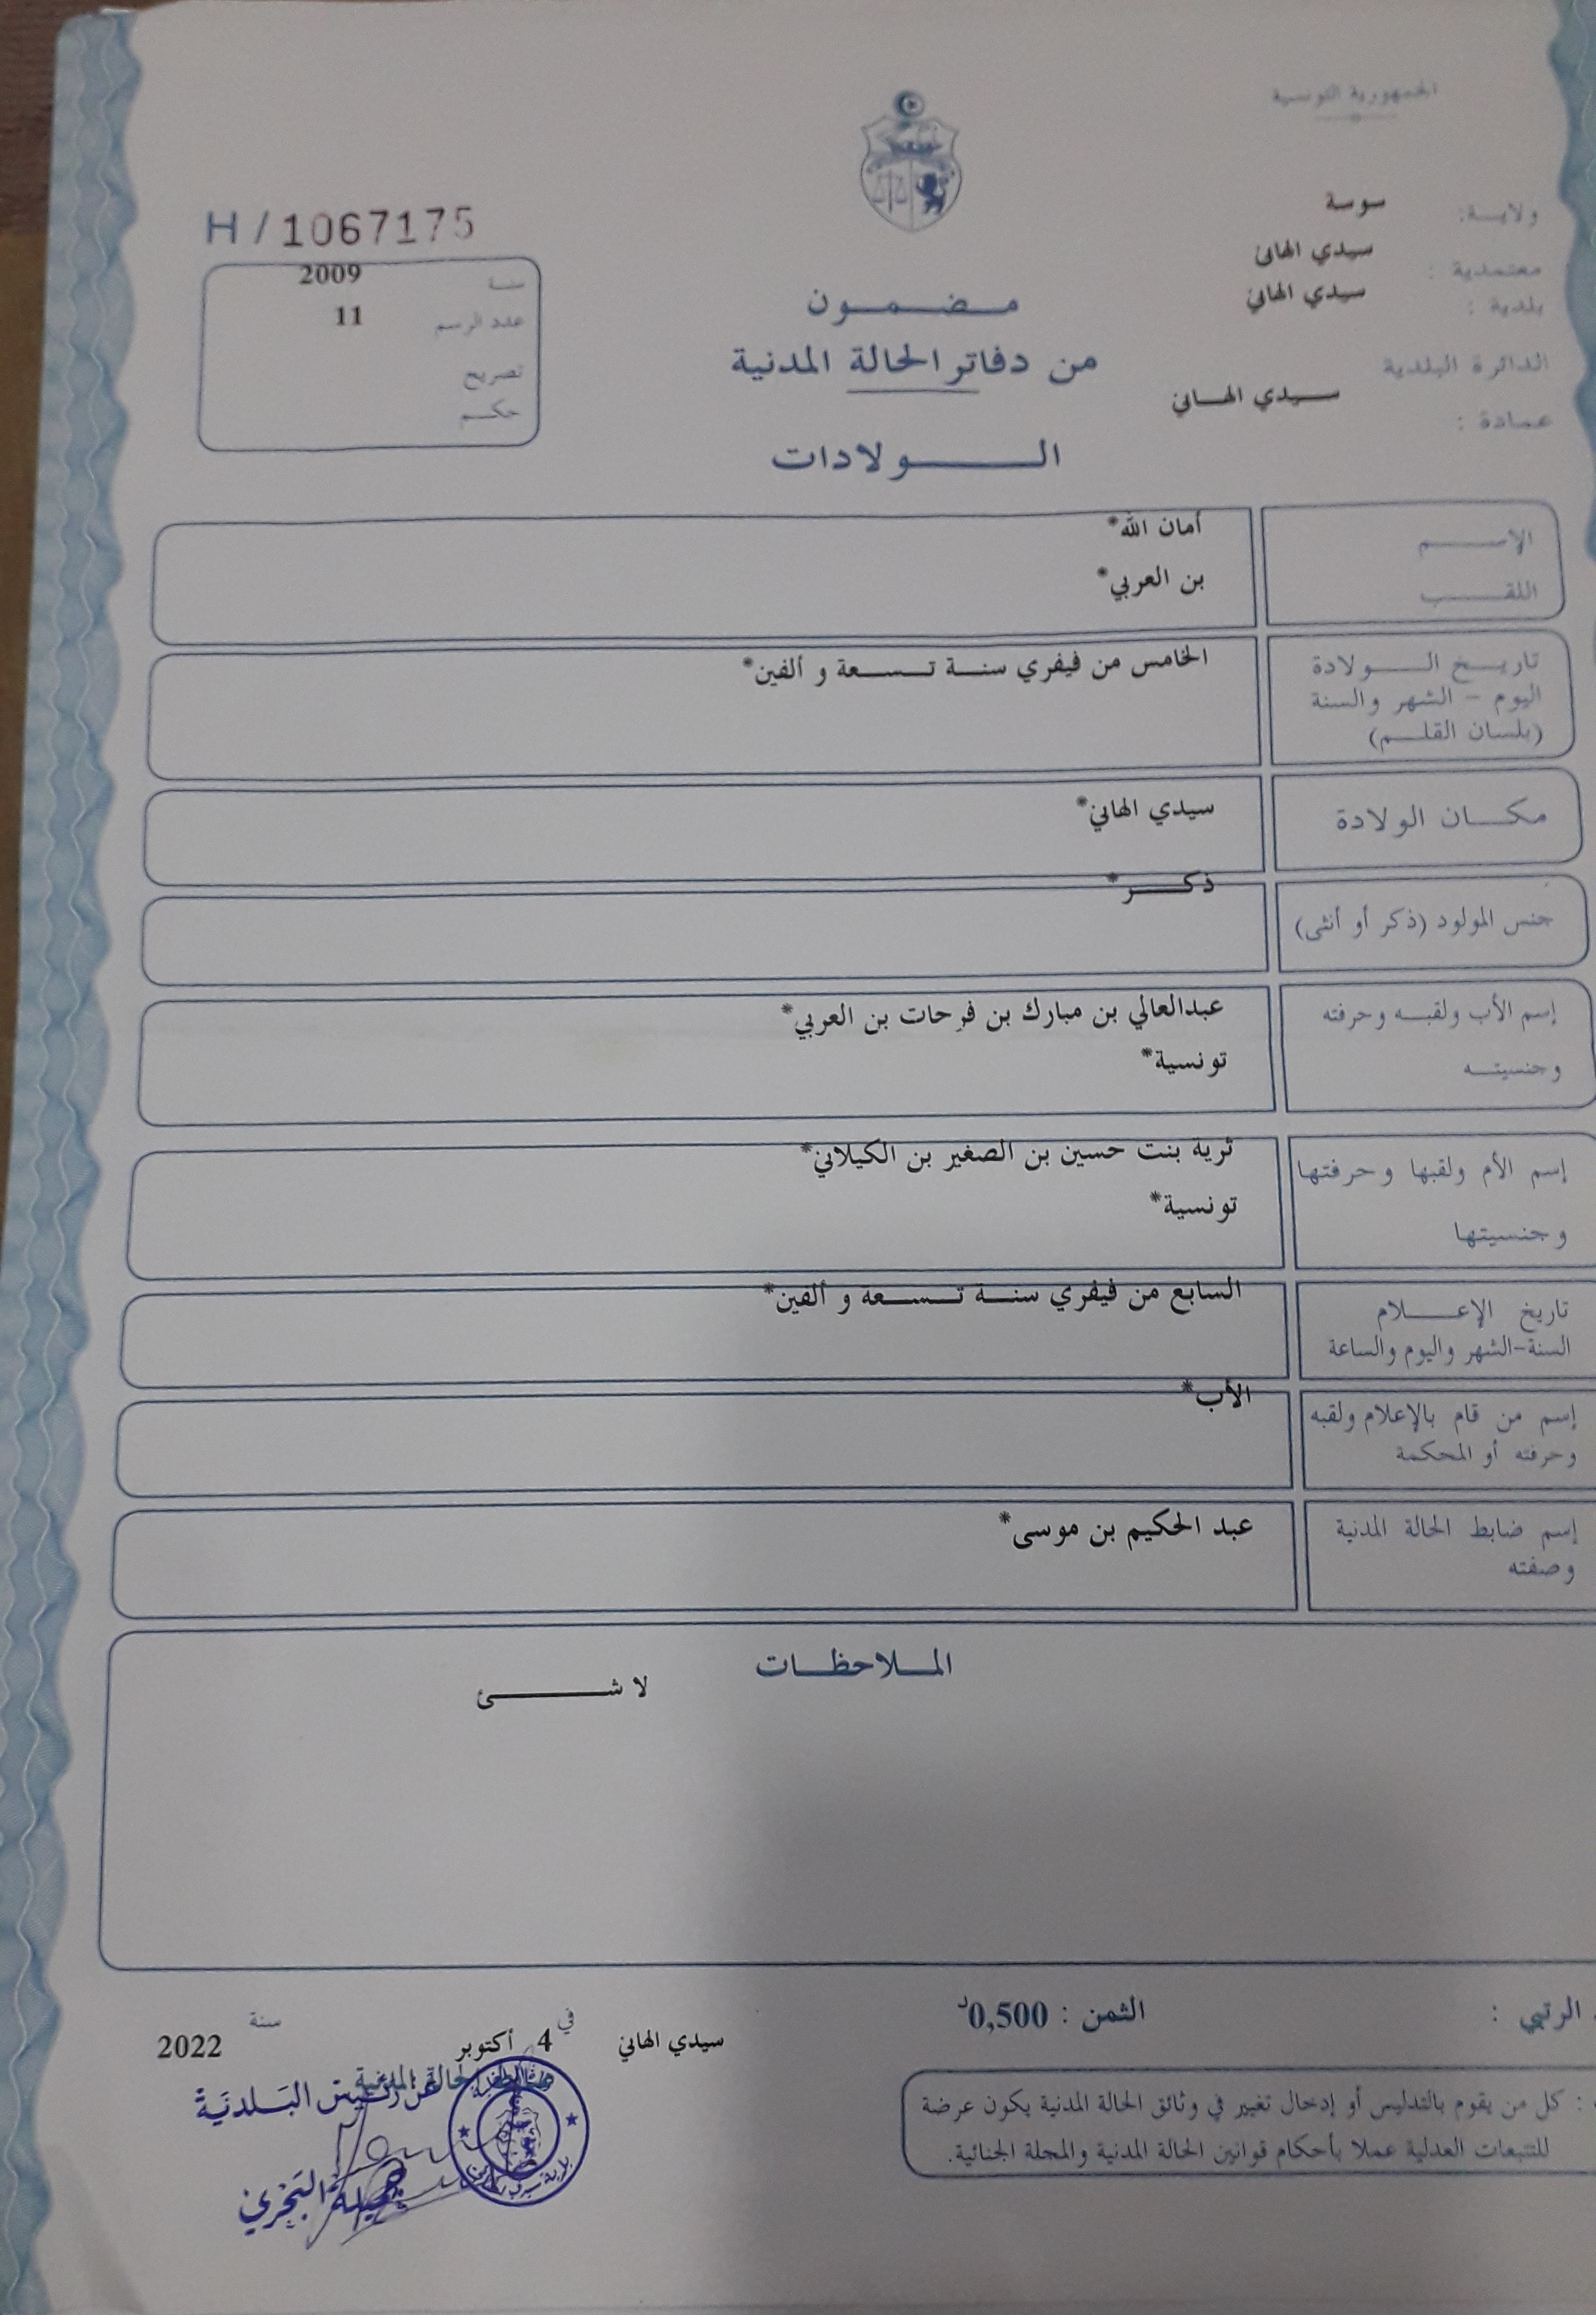 الجمهورية التونسية
ولايـة: سوسة
معتمدية : سيدي الهاني
بلدية : سيدي الهاني
الدائرة البلدية
عمادة : سيدي الهاني
H / 1067175
سنة 2009
عدد الرسم 11
تصريح
حكم
مضمون
من دفاتر الحالة المدنية
الولادات
الاسم أمان الله*
اللقب بن العربي*
تاريخ الولادة الخامس من فيفري سنة تسعة و ألفين*
اليوم - الشهر والسنة
(بلسان القلم)
مكان الولادة سيدي الهاني*
جنس المولود (ذكر أو أنثى) ذكر*
إسم الأب ولقبه وحرفته عبدالعالي بن مبارك بن فرحات بن العربي*
وجنسيته تونسية*
إسم الأم ولقبها وحرفتها ثرية بنت حسين بن الصغير بن الكيلاني*
وجنسيتها تونسية*
تاريخ الإعلام السابع من فيفري سنة تسعة و ألفين*
السنة-الشهر واليوم والساعة
إسم من قام بالإعلام ولقبه الأب*
وحرفته أو المحكمة
إسم ضابط الحالة المدنية عبد الحكيم بن موسى*
وصفته
الملاحظات
لا شئ
الرتبي :
الثمن : 0,500د
سيدي الهاني في 4 أكتوبر سنة 2022
الحالة المدنية
عن رئيس البلدية
: كل من يقوم بالتدليس أو إدخال تغيير في وثائق الحالة المدنية يكون عرضة
للتتبعات العدلية عملا بأحكام قوانين الحالة المدنية والمجلة الجنائية.